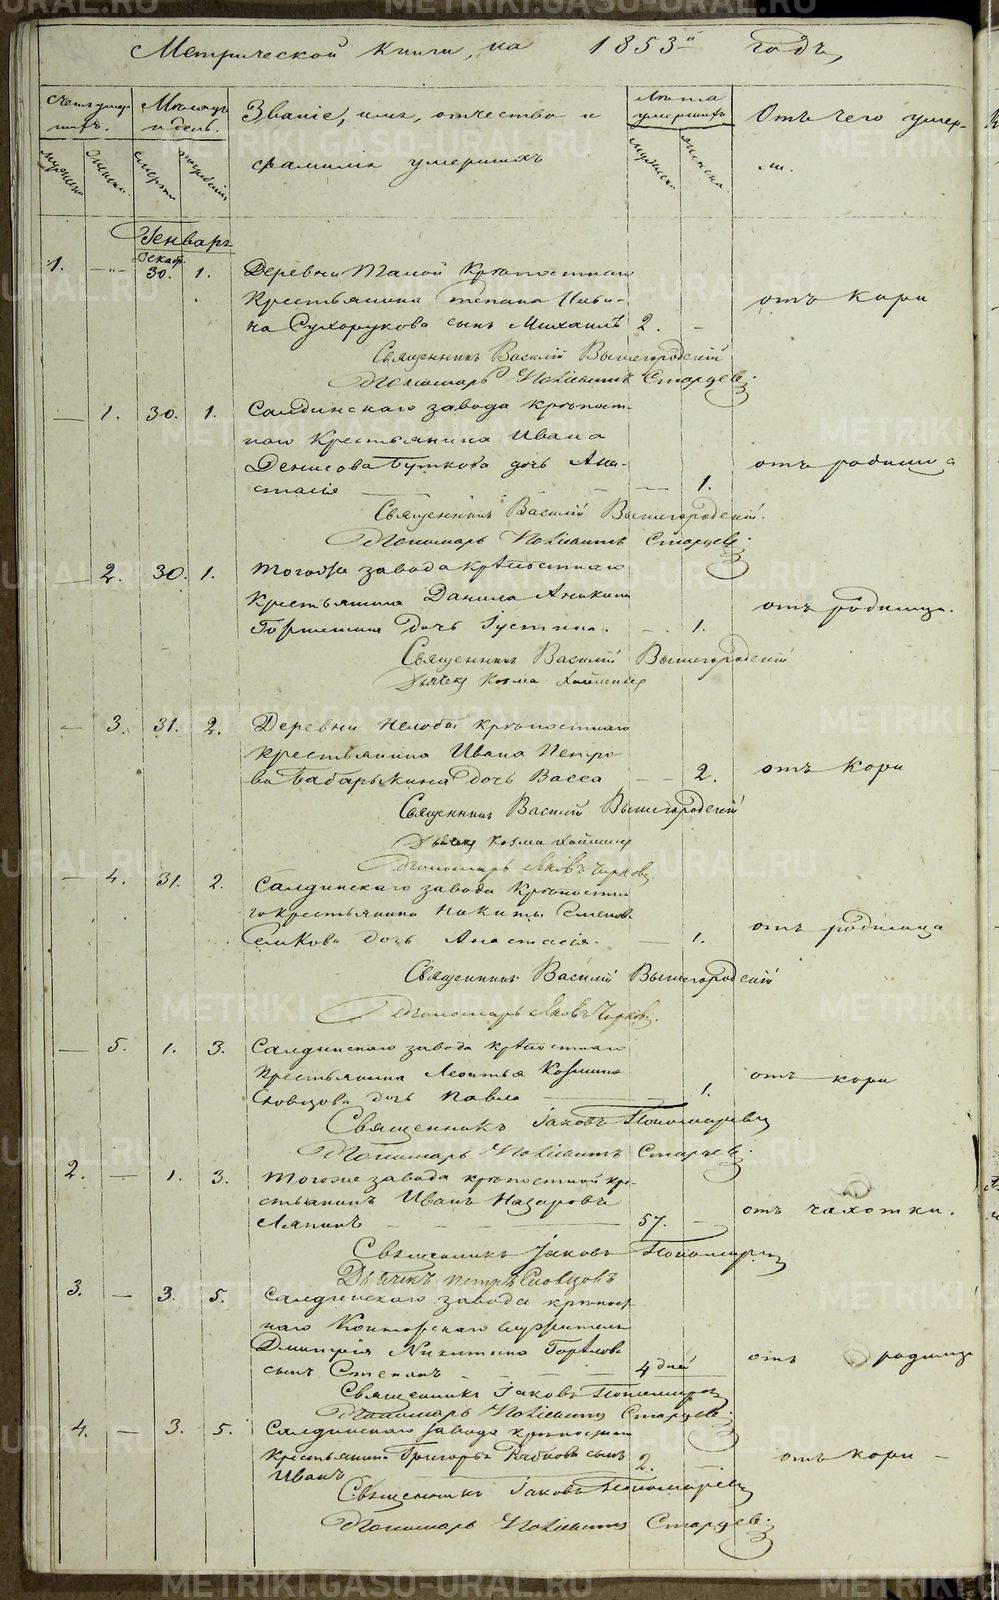 Метрической книги, на 1853й годъ,
Счетъ умер-
шихъ.
Мѣсяцъ
и день.
Званіе, имя, отчество и
фамилія умершихъ
Лѣта
умершихъ
Отъ чего умер-
ли.
мужеска
женска
смерти
погребенія
мужеска
женска
Генварь
1. Декаб. 30. 1. Деревни крѣпостнаго
крестьянина Степана Ильи-
на Сухорукова сынъ Михаилъ 2. отъ кори
Священникъ Василій Вышегородскій
Пономарь Старцевъ.
1. 30. 1. Салдинскаго завода крѣпост-
наго крестьянина Ивана
Денисова Буткова дочь Ана-
стасія 1. отъ родимца
Священникъ Василій Вышегородскій.
Пономарь Старцевъ.
2. 30. 1. Тогоже завода крѣпостнаго
крестьянина Данила
дочь Іустина. 1. отъ родимца.
Священникъ Василій Вышегородскій
Дьячекъ Козма
3. 31. 2. Деревни Нелобы крѣпостнаго
крестьянина Ивана Петро-
ва Бабарыкина дочь Васса 2. отъ кори
Священникъ Василій Вышегородскій
Дьячекъ Козма
Пономарь Яковъ
4. 31. 2. Салдинскаго завода крѣпостна
го крестьянина Никиты Семенов
дочь Анастасія. 1. отъ родимца
Священникъ Василій Вышегородскій
Пономарь Яковъ
5. 1. 3. Салдинскаго завода крѣпостнаго
крестьянина Леонтья Козмина
Словцова дочь Павла 1. отъ кори
Священникъ Іаковъ Пономаревъ
Пономарь Старцевъ.
2. 1. 3. Тогоже завода крѣпостной кре-
стьянинъ Иванъ Назаровъ
Ляпинъ 57. отъ чахотки.
Священникъ Іаковъ Пономаревъ
Дьячекъ Петръ Словцовъ
3. 3. 5. Салдинскаго завода крѣпост-
наго Конторскаго служителя
Дмитрія Никитина Горѣлова
сынъ Степанъ 4 дней отъ родимца
Священникъ Іаковъ Пономаревъ
Пономарь Старцевъ.
4. 3. 5. Салдинскаго завода крѣпостнаго
крестьянина Григорья Рябкова сынъ
Иванъ 2. отъ кори
Священникъ Іаковъ Пономаревъ
Пономарь Старцевъ.
METRIKI.GASO-URAL.RU